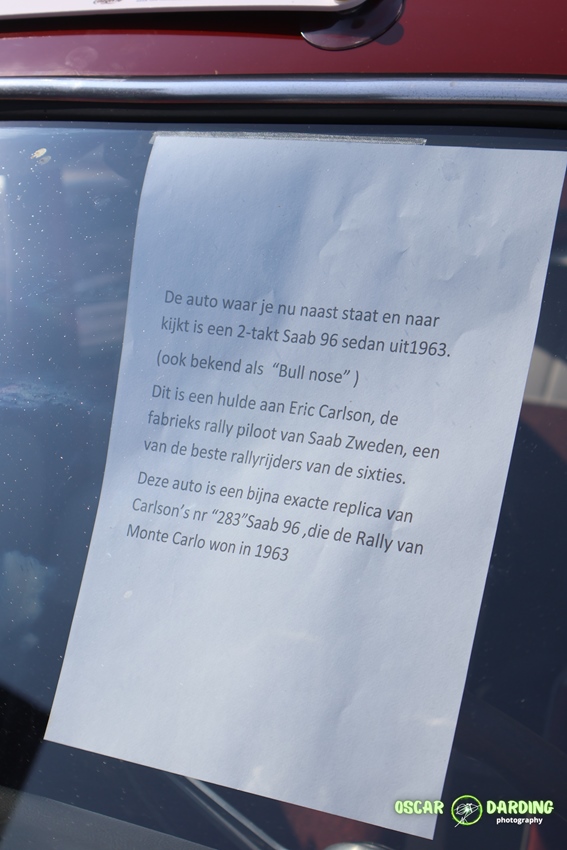 De auto waar je nu naast staat en naar
kijkt is een 2-takt Saab 96 sedan uit1963.
(ook bekend als “Bull nose” )
Dit is een hulde aan Eric Carlson, de
fabrieks rally piloot van Saab Zweden, een
van de beste rallyrijders van de sixties.
Deze auto is een bijna exacte replica van
Carlson’s nr “283”Saab 96 ,die de Rally van
Monte Carlo won in 1963
OSCAR DARDING
photography